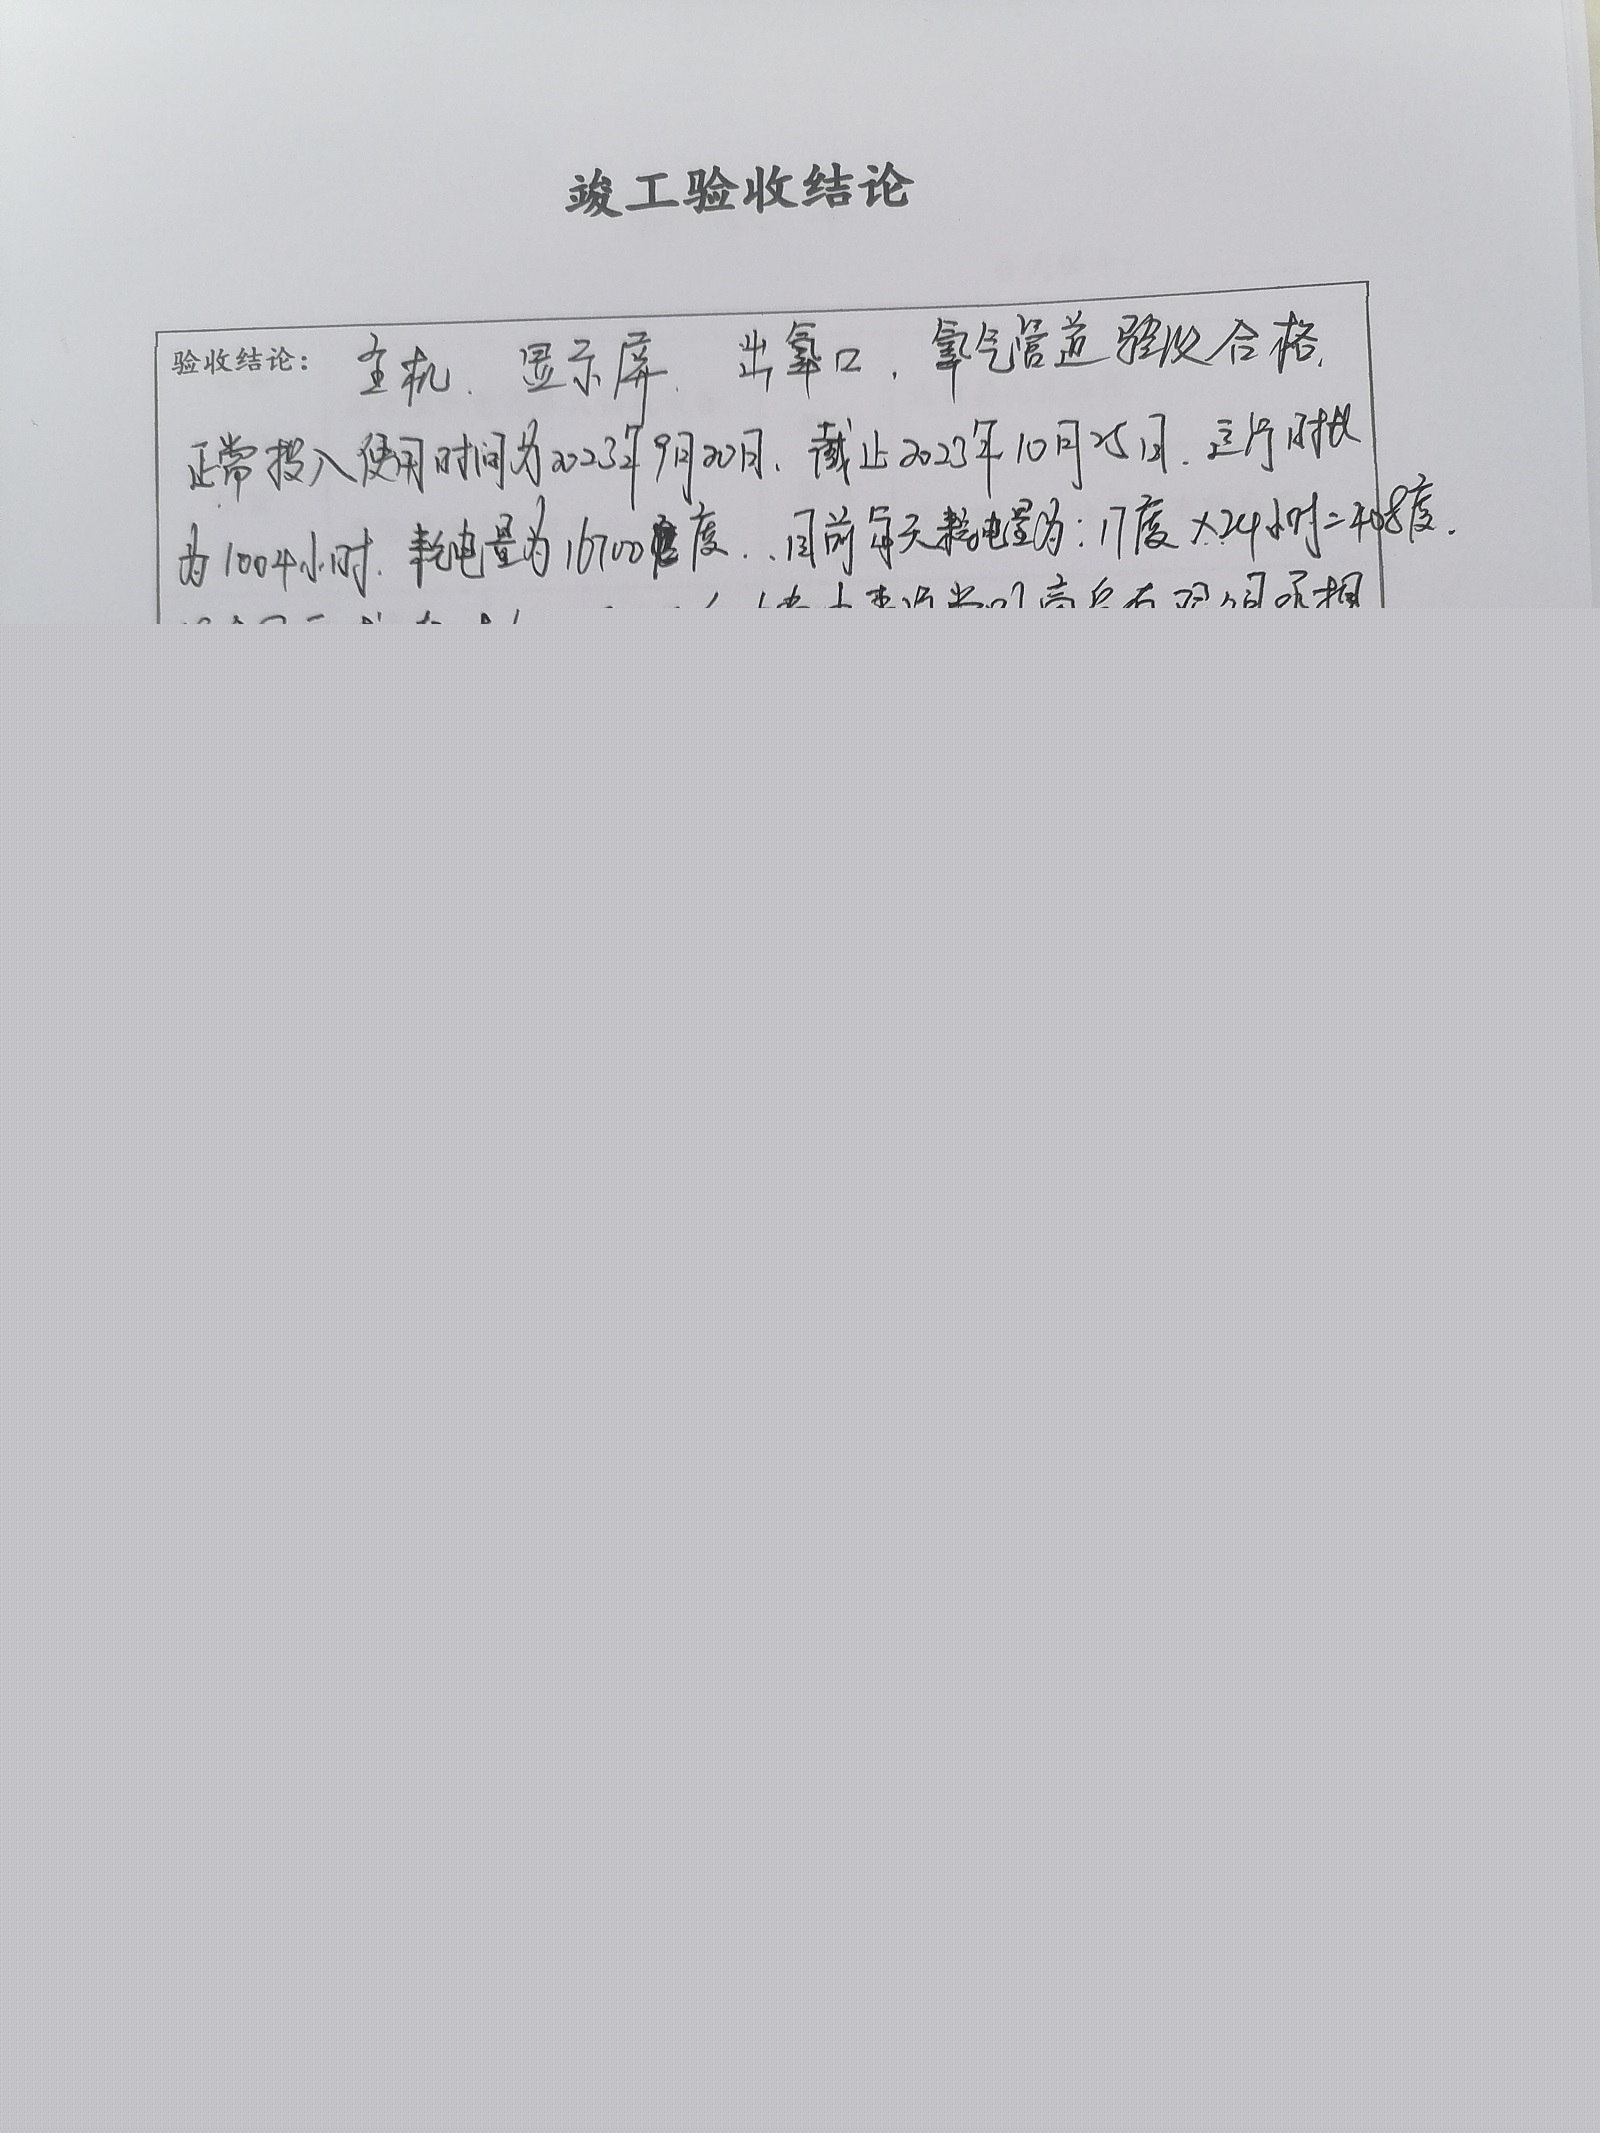 竣工验收结论
验收结论: 主机、显示屏、出氧口、氧气管道验收合格.
正常投入使用时间为2023年9月20日、截止2023年10月25日、运行时长
为1004小时、耗电量为16700度、目前每天耗电量为:17度×24小时=408度.